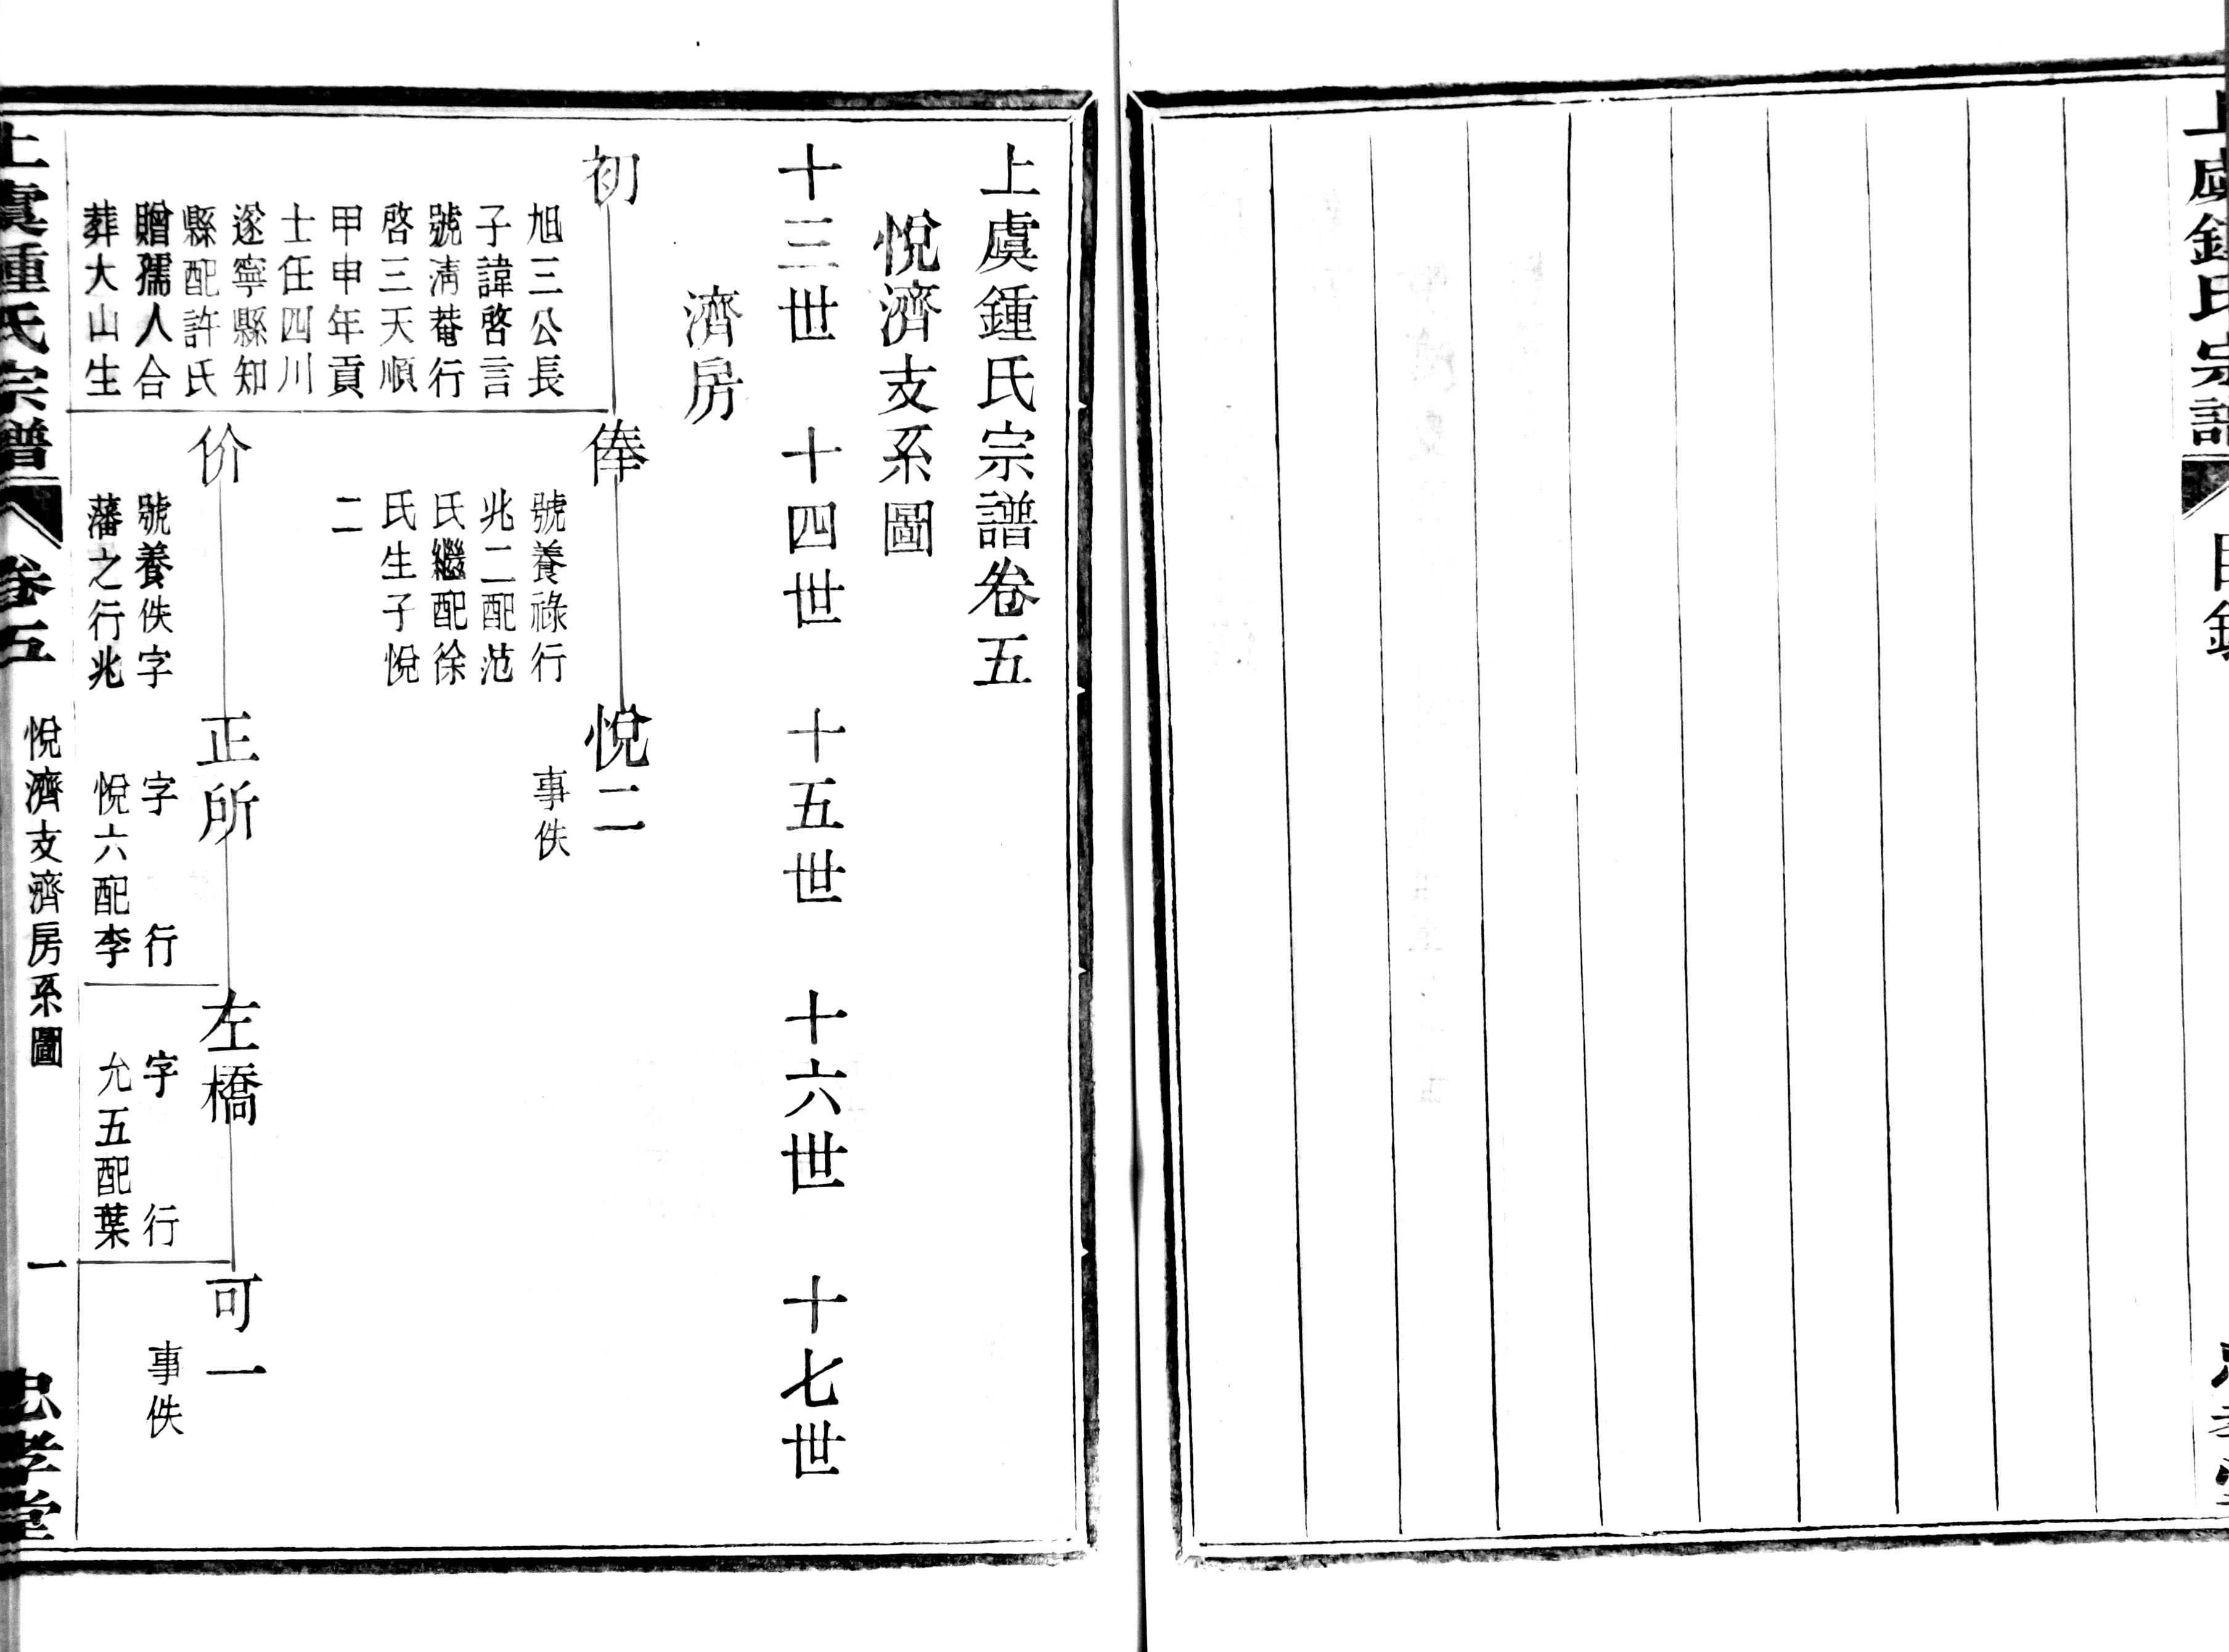 目錄
上虞鍾氏宗譜卷五
悅濟支系圖
十三世 十四世 十五世 十六世 十七世
濟房
初
旭三公長
子諱啓言
號淸菴行
啓三天順
甲申年貢
士任四川
遂寧縣知
縣配許氏
贈孺人合
葬大山生
俸
號養祿行
兆二配范
氏繼配徐
氏生子悅
二
悅二
事佚
价
號養佚字
藩之行兆
正所
字 行
悅六配李
左橋
字 行
允五配葉
可一
事佚
上虞鍾氏宗譜 卷五 悅濟支濟房系圖 一 忠孝堂